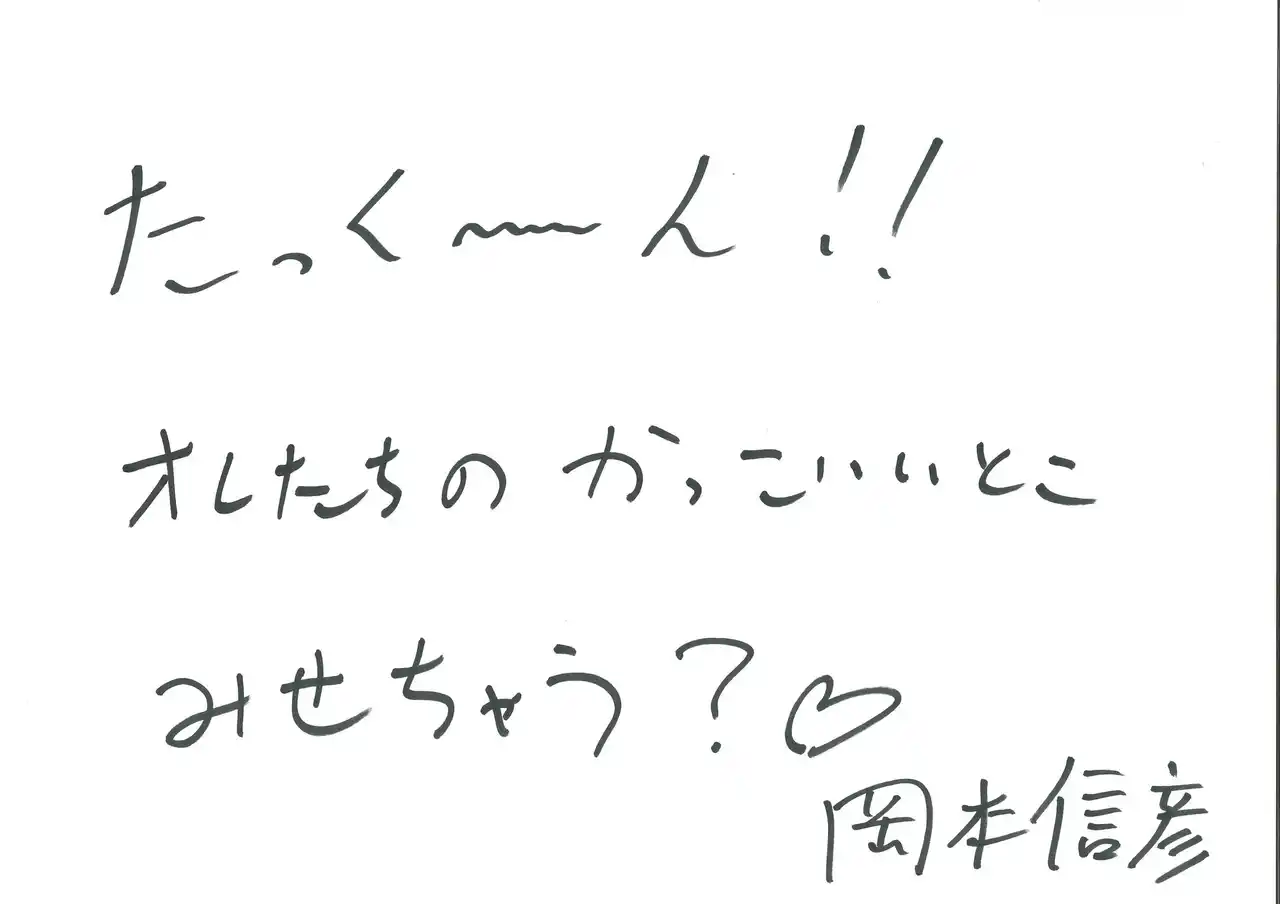 たっく〜ん!!
オレたちのかっこいいとこ
みせちゃう?♡
岡本信彦